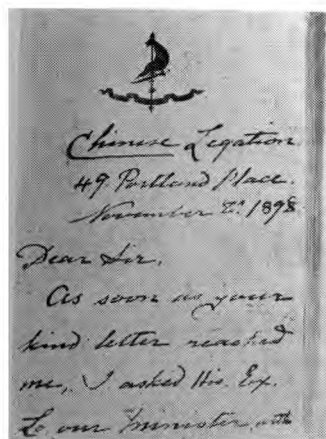 Chinese Legation
49. Portland Place.
November 2d. 1898
Dear Sir,
As soon as your
kind letter reached
me, I asked His. Ex.
Lo our Minister, with